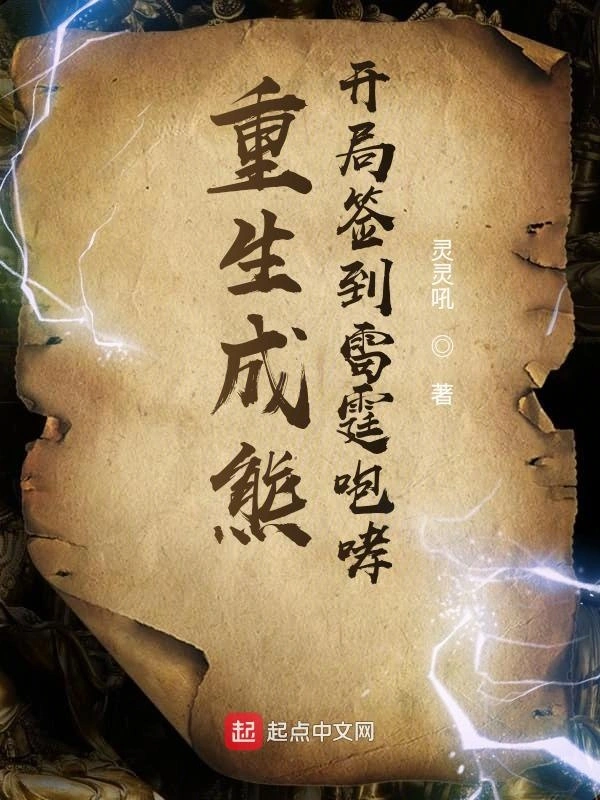 开局签到雷霆咆哮
重生成熊
灵灵吼 ◎ 著
起 起点中文网